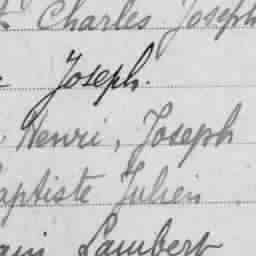 Charles Joseph
Joseph.
Henri, Joseph
Baptiste Julien
Lambert